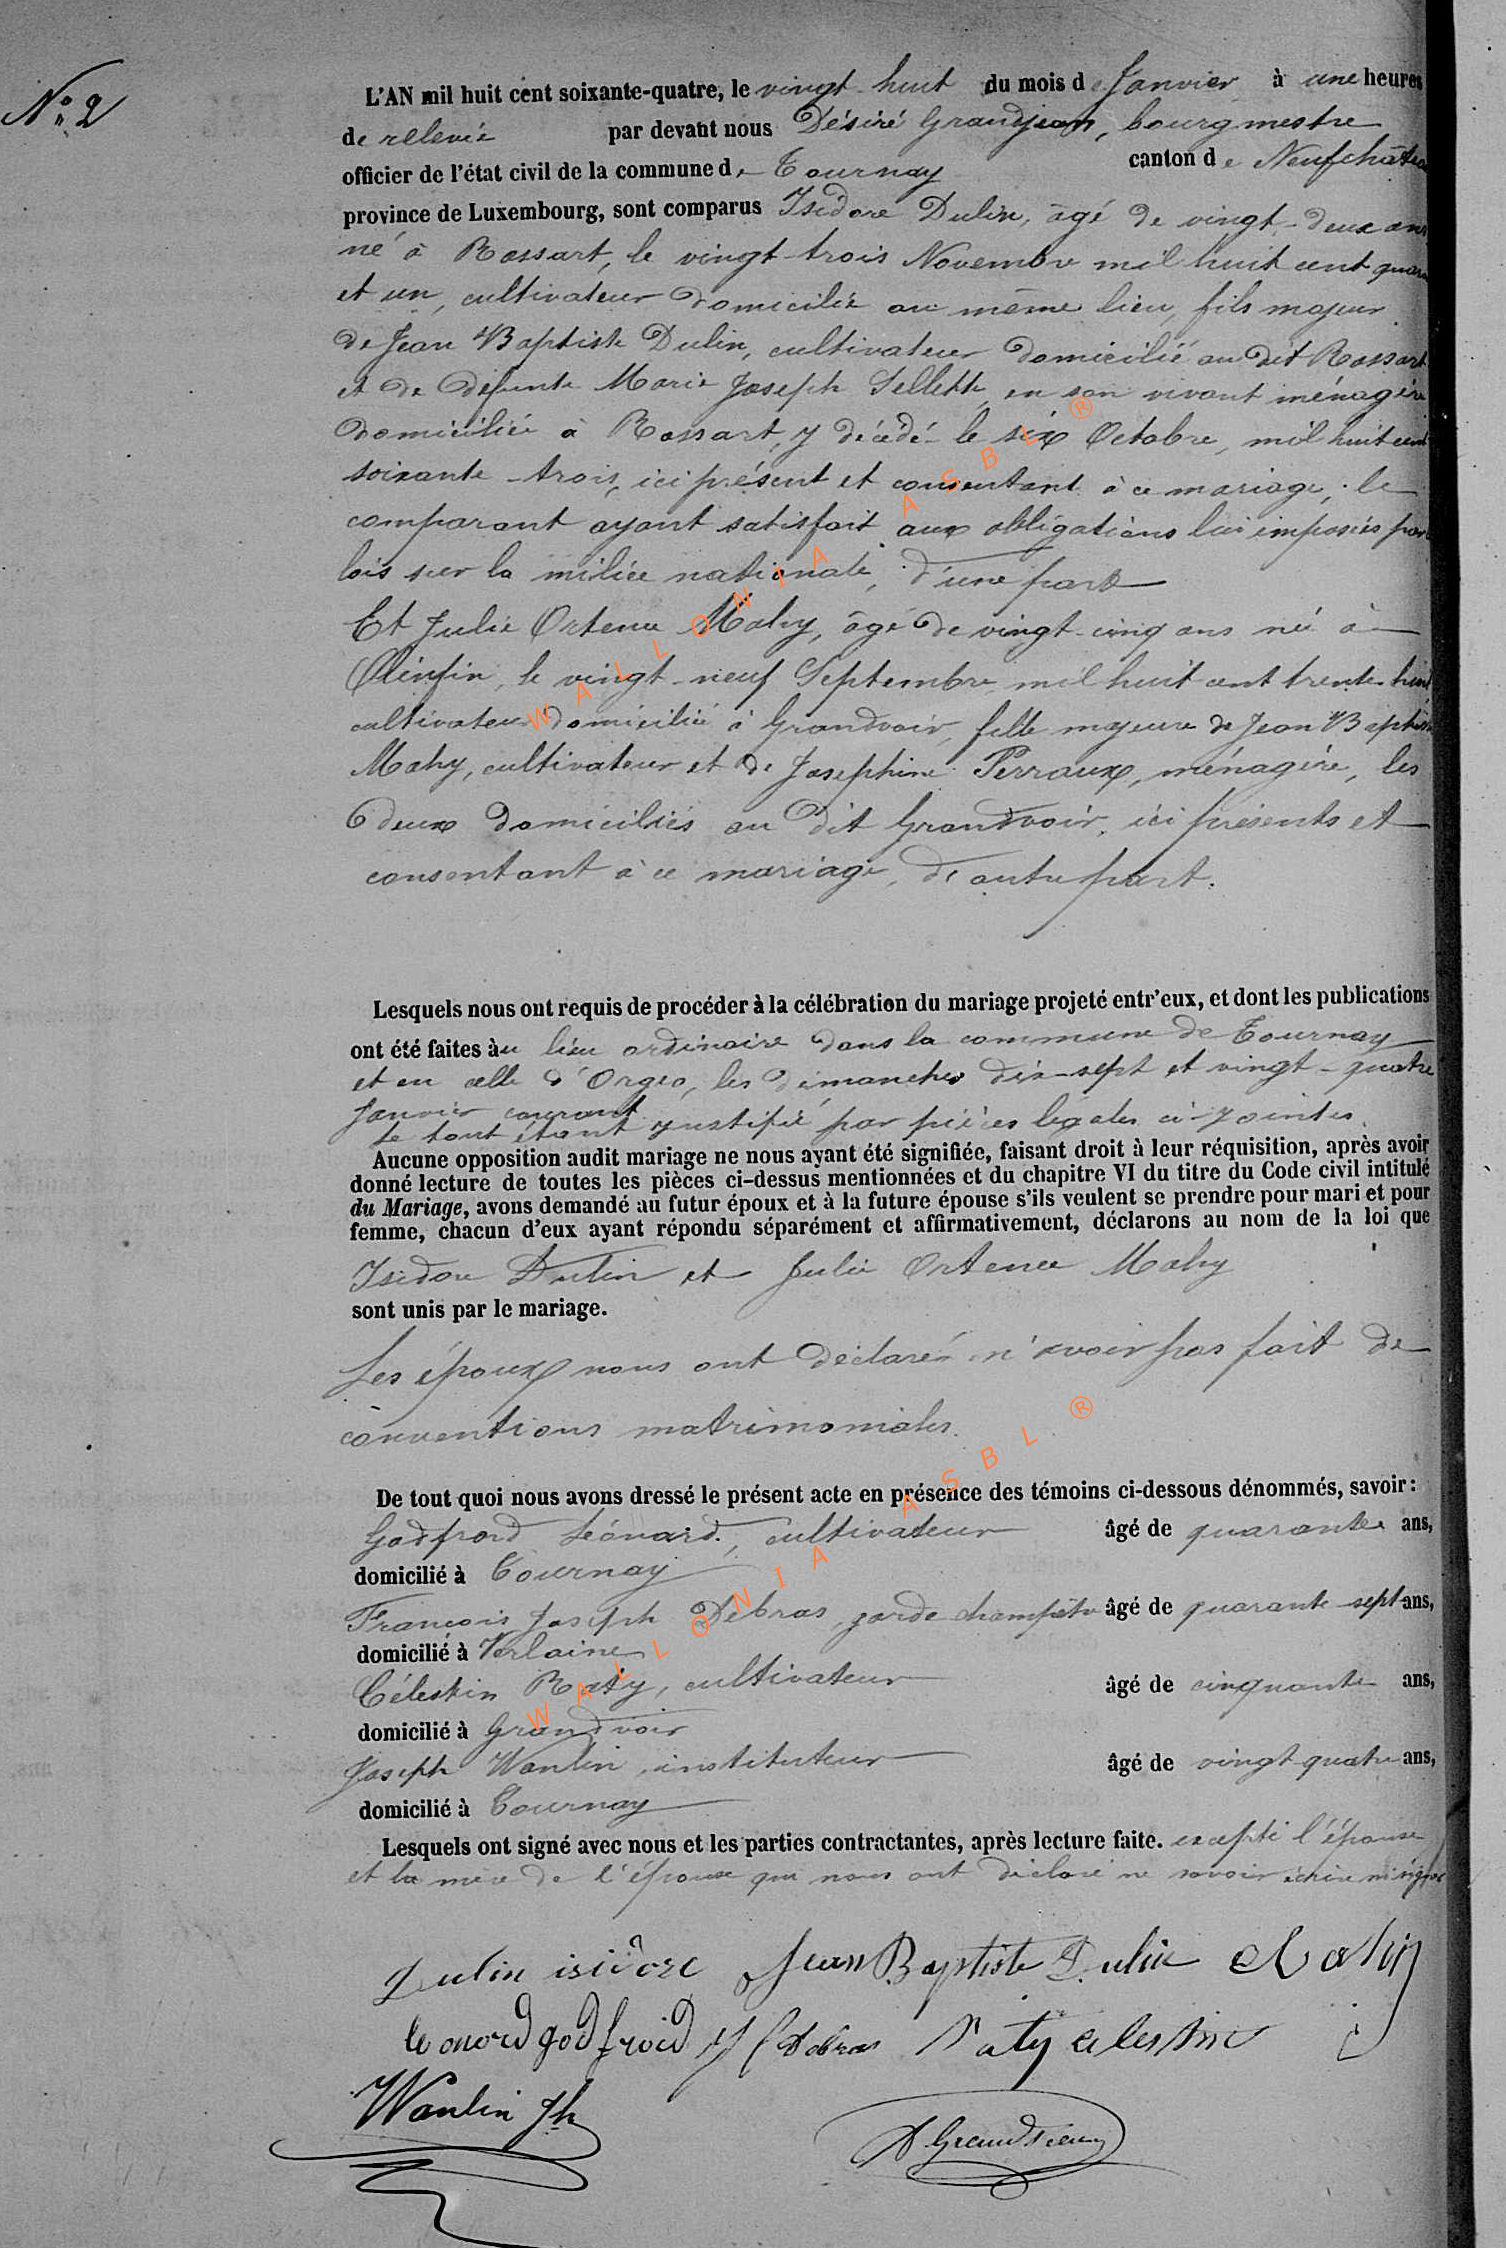 N° 2
L'AN mil huit cent soixante-quatre, le vingt-huit du mois de Janvier à une heures
de relevée par devant nous Désiré Grandjean, bourgmestre
officier de l'état civil de la commune de Tournay canton de Neufchâteau
province de Luxembourg, sont comparus Isidore Dulin, âgé de vingt-deux ans
né à Rossart, le vingt-trois Novembre mil huit cent quaran
et un, cultivateur domicilié au même lieu, fils majeur
de Jean Baptiste Dulin, cultivateur domicilié au dit Rossart
et de défunte Marie Joseph en son vivant ménagère
domiciliée à Rossart, y décédé le six Octobre, mil huit cent
soixante-trois, ici présent et consentant à ce mariage; le
comparant ayant satisfait aux obligations lui imposées par
lois sur la milice nationale, d'une part
Et Julie Ortence Mahy, âgé de vingt-cinq ans né à
le vingt-neuf Septembre mil huit cent trente-huit
cultivateur domiciliée à Grandvoir, fille majeure de Jean Baptiste
Mahy, cultivateur et de Josephine Perraux, ménagère, les
deux domiciliés au dit Grandvoir, ici présents et
consentant à ce mariage, d'autre part.
Lesquels nous ont requis de procéder à la célébration du mariage projeté entr'eux, et dont les publications
ont été faites au lieu ordinaire dans la commune de Tournay
et en celle d'Orgeo, les dimanches dix-sept et vingt-quatre
Janvier courant
le tout étant justifié par pièces légales ci-jointes.
Aucune opposition audit mariage ne nous ayant été signifiée, faisant droit à leur réquisition, après avoir
donné lecture de toutes les pièces ci-dessus mentionnées et du chapitre VI du titre du Code civil intitulé
du Mariage, avons demandé au futur époux et à la future épouse s'ils veulent se prendre pour mari et pour
femme, chacun d'eux ayant répondu séparément et affirmativement, déclarons au nom de la loi que
Isidore Dulin et Julie Ortence Mahy
sont unis par le mariage.
Les époux nous ont déclaré n'avoir pas fait de
conventions matrimoniales.
De tout quoi nous avons dressé le présent acte en présence des témoins ci-dessous dénommés, savoir :
Godfroid Léonard, cultivateur âgé de quarante ans,
domicilié à Tournay
François Joseph Debras, garde champêtre âgé de quarante-sept ans,
domicilié à Verlaine
Célestin Raty, cultivateur âgé de cinquante ans,
domicilié à Grandvoir
Joseph Wanlin, instituteur âgé de vingt-quatre ans,
domicilié à Tournay
Lesquels ont signé avec nous et les parties contractantes, après lecture faite. excepté l'épouse
et la mère de l'épouse qui nous ont déclaré ne savoir écrire ni signer
Dulin isidore Jean Baptiste Dulin Mahy
leonord godfroid F J Debras Raty celestin
Wanlin Jh D Grandjean
WALLONIA ASBL ®
WALLONIA ASBL ®